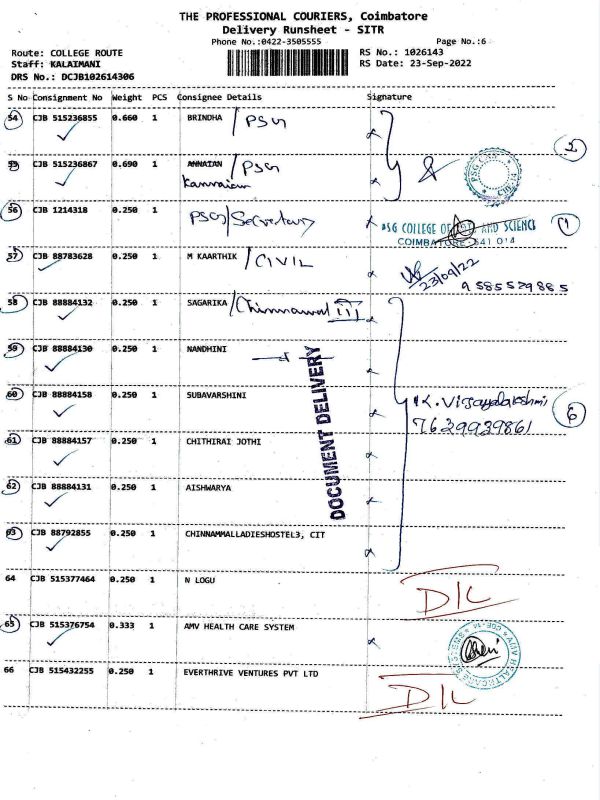 THE PROFESSIONAL COURIERS, Coimbatore
Delivery Runsheet - SITR
Phone No.:0422-3505555 Page No.:6
Route: COLLEGE ROUTE RS No.: 1026143
Staff: KALAIMANI RS Date: 23-Sep-2022
DRS No.: DCJB102614306
S No Consignment No Weight PCS Consignee Details Signature
54 CJB 515236855 0.660 1 BRINDHA / PSG
2
55 CJB 515236867 0.690 1 ANNAIAN / PSG
Kannaian
PSG CAS
56 CJB 1214318 0.250 1 PSG/Secretary
PSG COLLEGE OF ARTS AND SCIENCE
COIMBATORE - 641 014
1
57 CJB 88783628 0.250 1 M KAARTHIK / CIVIL
23/09/22
9585529885
58 CJB 88884132 0.250 1 SAGARIKA / Chinnawal III
59 CJB 88884130 0.250 1 NANDHINI
DOCUMENT DELIVERY
60 CJB 88884158 0.250 1 SUBAVARSHINI
K. Vijayalakshmi
7629939861
6
61 CJB 88884157 0.250 1 CHITHIRAI JOTHI
62 CJB 88884131 0.250 1 AISHWARYA
63 CJB 88792855 0.250 1 CHINNAMMALLADIESHOSTEL3, CIT
64 CJB 515377464 0.250 1 N LOGU
D/L
65 CJB 515376754 0.333 1 AMV HEALTH CARE SYSTEM
AMV HEALTHCARE SYSTEMS
66 CJB 515432255 0.250 1 EVERTHRIVE VENTURES PVT LTD
D/L